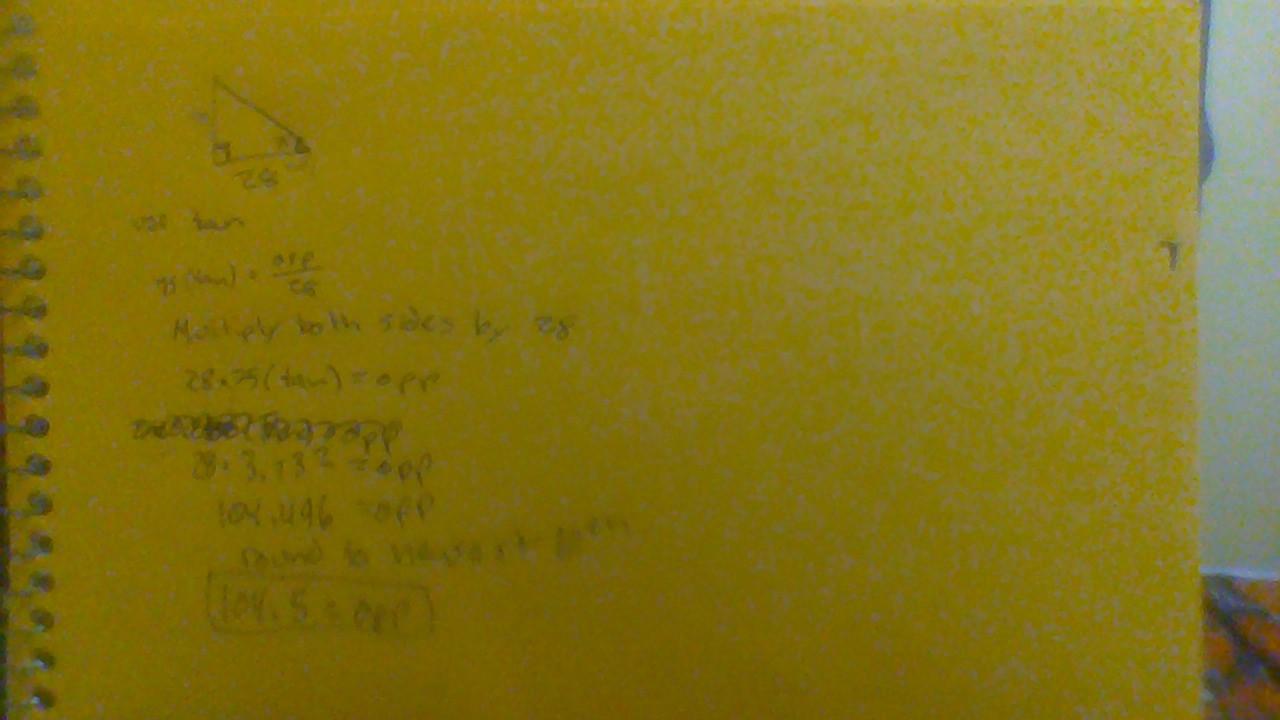 28
use tan
75(tan) = opp/28
Multiply both sides by 28
28·75(tan) = opp
28·3.732 = opp
104.496 = opp
round to nearest 10th
104.5 = opp